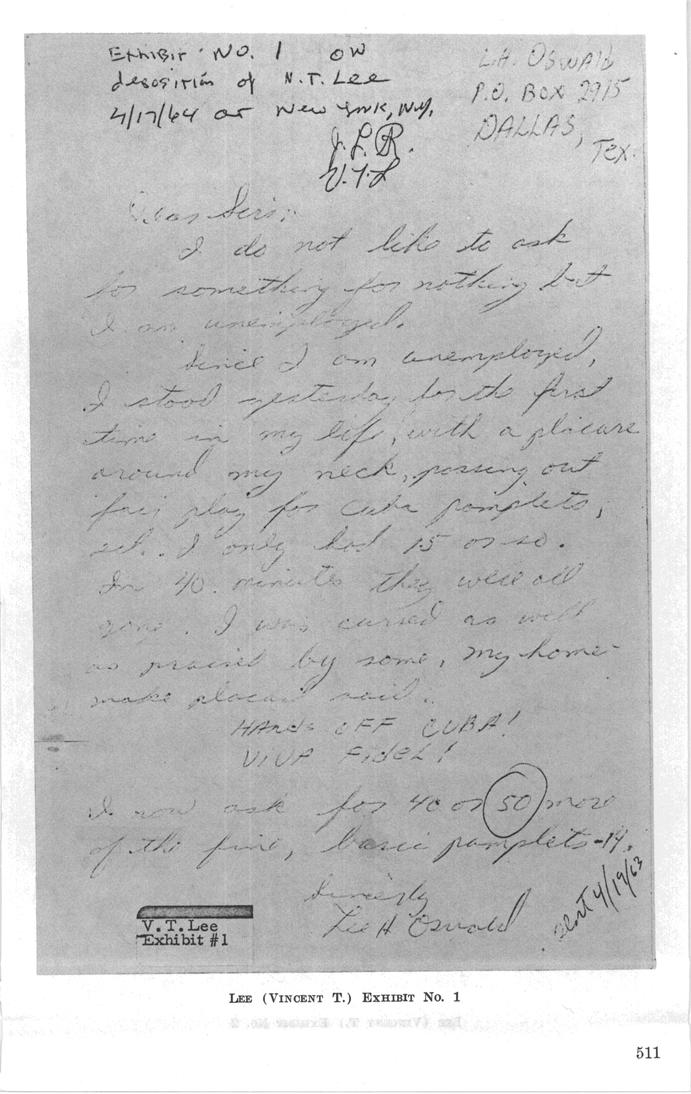 Exhibit No. 1 on
desosition of N.T. Lee
4/17/64 at New York, N.Y.
J.L.R.
V.T.L
L.H. OSWALD
P.O. BOX 2915
DALLAS,
Tex.
Dear Sirs:
I do not like to ask
for something for nothing but
I am unemployed.
Since I am unemployed,
I stood yesterday for the first
time in my life, with a placare
around my neck, passing out
fair play for Cuba pamplets,
ect. I only had 15 or so.
In 40 minutes they were all
gone. I was cursed as well
as praised by some. My home-
make placard said:
HANDS OFF CUBA!
VIVA FIDEL!
I now ask for 40 or 50 more
of the fine, basic pamplets-14.
Sincerely
Lee H Oswald
sent 4/19/63
V.T.Lee
Exhibit #1
LEE (VINCENT T.) EXHIBIT No. 1
LEE (VINCENT T.) EXHIBIT No. 2
511